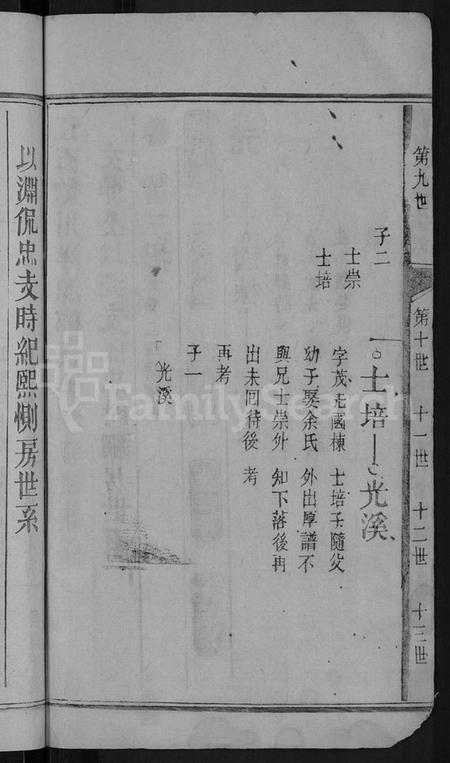 第九世 第十世 十一世 十二世 十三世
子二
士崇
士培
士培 光溪
字茂毛國棟
幼子娶余氏
與兄士崇外
出未回待後
再考
子一
光溪
士培子隨父
外出厚譜不
知下落後再
考
以淵侃忠支時紀熙惻房世系
FamilySearch